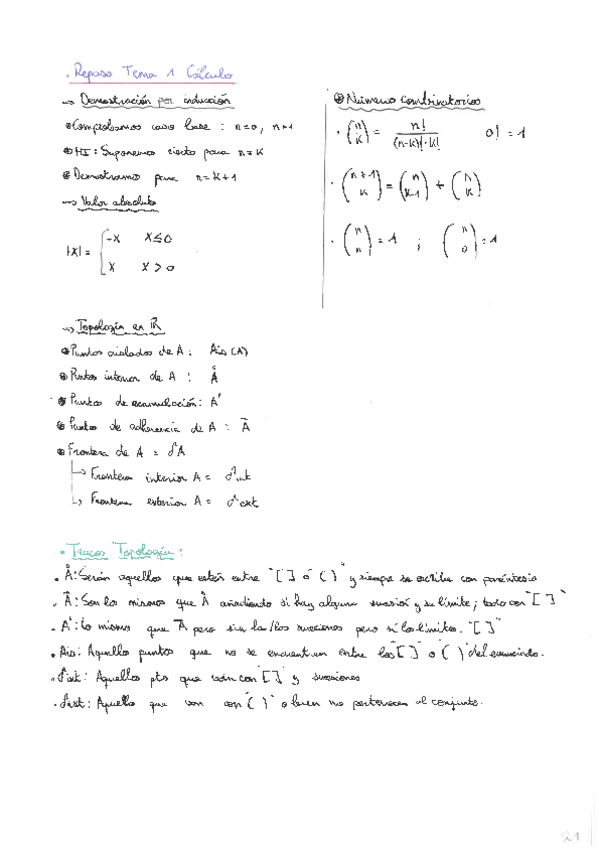 . Repaso Tema 1 Cálculo
→ Demostración por inducción
Comprobamos caso base : n=0, n=1
HI : Suponemos cierto para n=k
Demostramos para n=k+1
→ Valor absoluto
|x| = { -x x≤0
x x>0
Números combinatorios
· (n k) = n! / (n-k)!·k! 0! = 1
· (n+1 k) = (n k-1) + (n k)
· (n n) = 1 ; (n 0) = 1
→ Topología en ℝ
Puntos aislados de A : Ais(A)
Puntos interior de A : Å
Puntos de acumulación : A'
Puntos de adherencia de A : Ā
Frontera de A = ∂A
↳ Frontera interior A = ∂int
↳ Frontera exterior A = ∂ext
· Trucos Topología :
· Å : Serán aquellos que estén entre "[ ] ó ( )" y siempre se escribe con paréntesis
· Ā : Son los mismos que Å añadiendo si hay alguna sucesión y su límite ; todo con "[ ]"
· A' : Lo mismo que Ā pero sin la/las sucesiones pero sí los límites. "[ ]"
· Ais : Aquellos puntos que no se encuentran entre los "[ ]" o "( )" del enunciado.
· ∂int : Aquellos pts que van con "[ ]" y sucesiones
· ∂ext : Aquellos que van con "( )" o bien no pertenecen al conjunto.
21